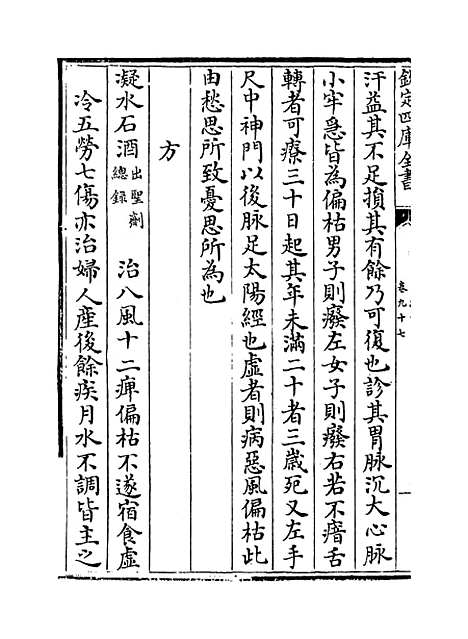 欽定四庫全書
卷九十七
汗益其不足損其有餘乃可復也診其胃脉沉大心脉
小牢急皆為偏枯男子則癈左女子則癈右若不瘖舌
轉者可療三十日起其年未滿二十者三歲死又左手
尺中神門以後脉足太陽經也虛者則病惡風偏枯此
由愁思所致憂思所為也
方
凝水石酒出聖劑總録 治八風十二痺偏枯不遂宿食虛
冷五勞七傷亦治婦人産後餘疾月水不調皆主之